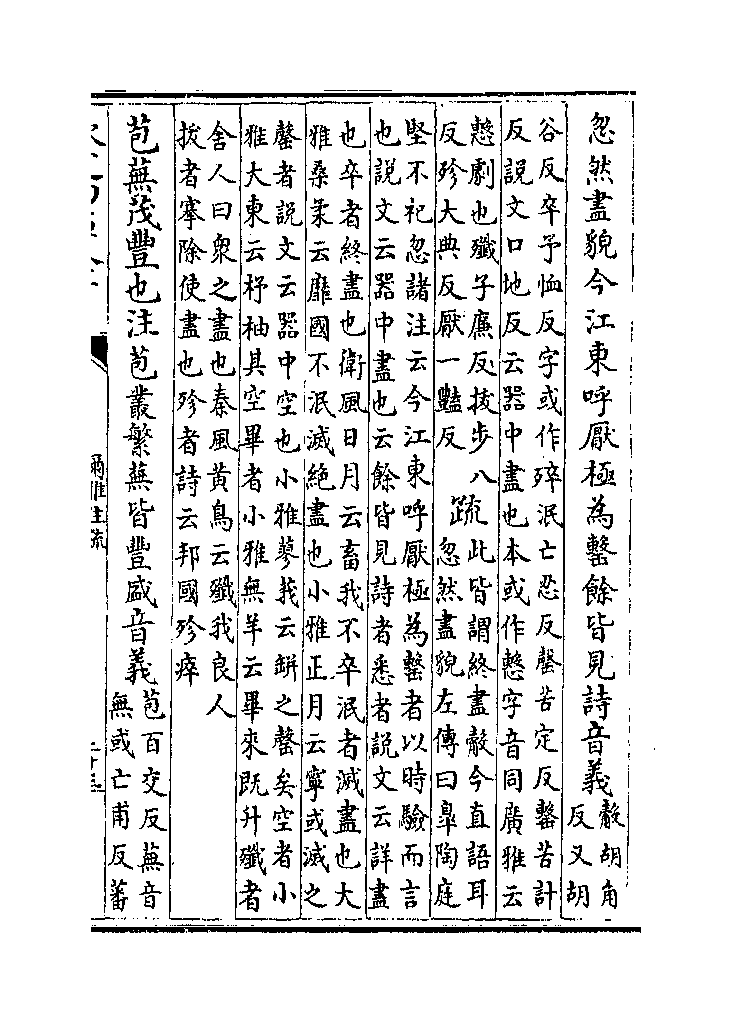 忽然盡貌今江東呼厭極為罊餘皆見詩音義觳胡角
反又胡
谷反卒予恤反字或作殌泯亡忍反罄苦定反罊苦計
反說文口地反云器中盡也本或作憗字音同廣雅云
憗劇也殲子廉反拔步八
反殄大典反厭一豔反
疏此皆謂終盡觳今直語耳
忽然盡貌左傳曰臯陶庭
堅不祀忽諸注云今江東呼厭極為罊者以時驗而言
也說文云器中盡也云餘皆見詩者悉者說文云詳盡
也卒者終盡也衛風日月云畜我不卒泯者滅盡也大
雅桑柔云靡國不泯滅絕盡也小雅正月云寧或滅之
罄者說文云器中空也小雅蓼莪云缾之罄矣空者小
雅大東云杼柚其空畢者小雅無羊云畢來既升殲者
舍人曰衆之盡也秦風黃鳥云殲我良人
拔者搴除使盡也殄者詩云邦國殄瘁
苞蕪茂豐也注苞叢繁蕪皆豐盛音義苞百交反蕪音
無或亡甫反蕃
爾雅注疏